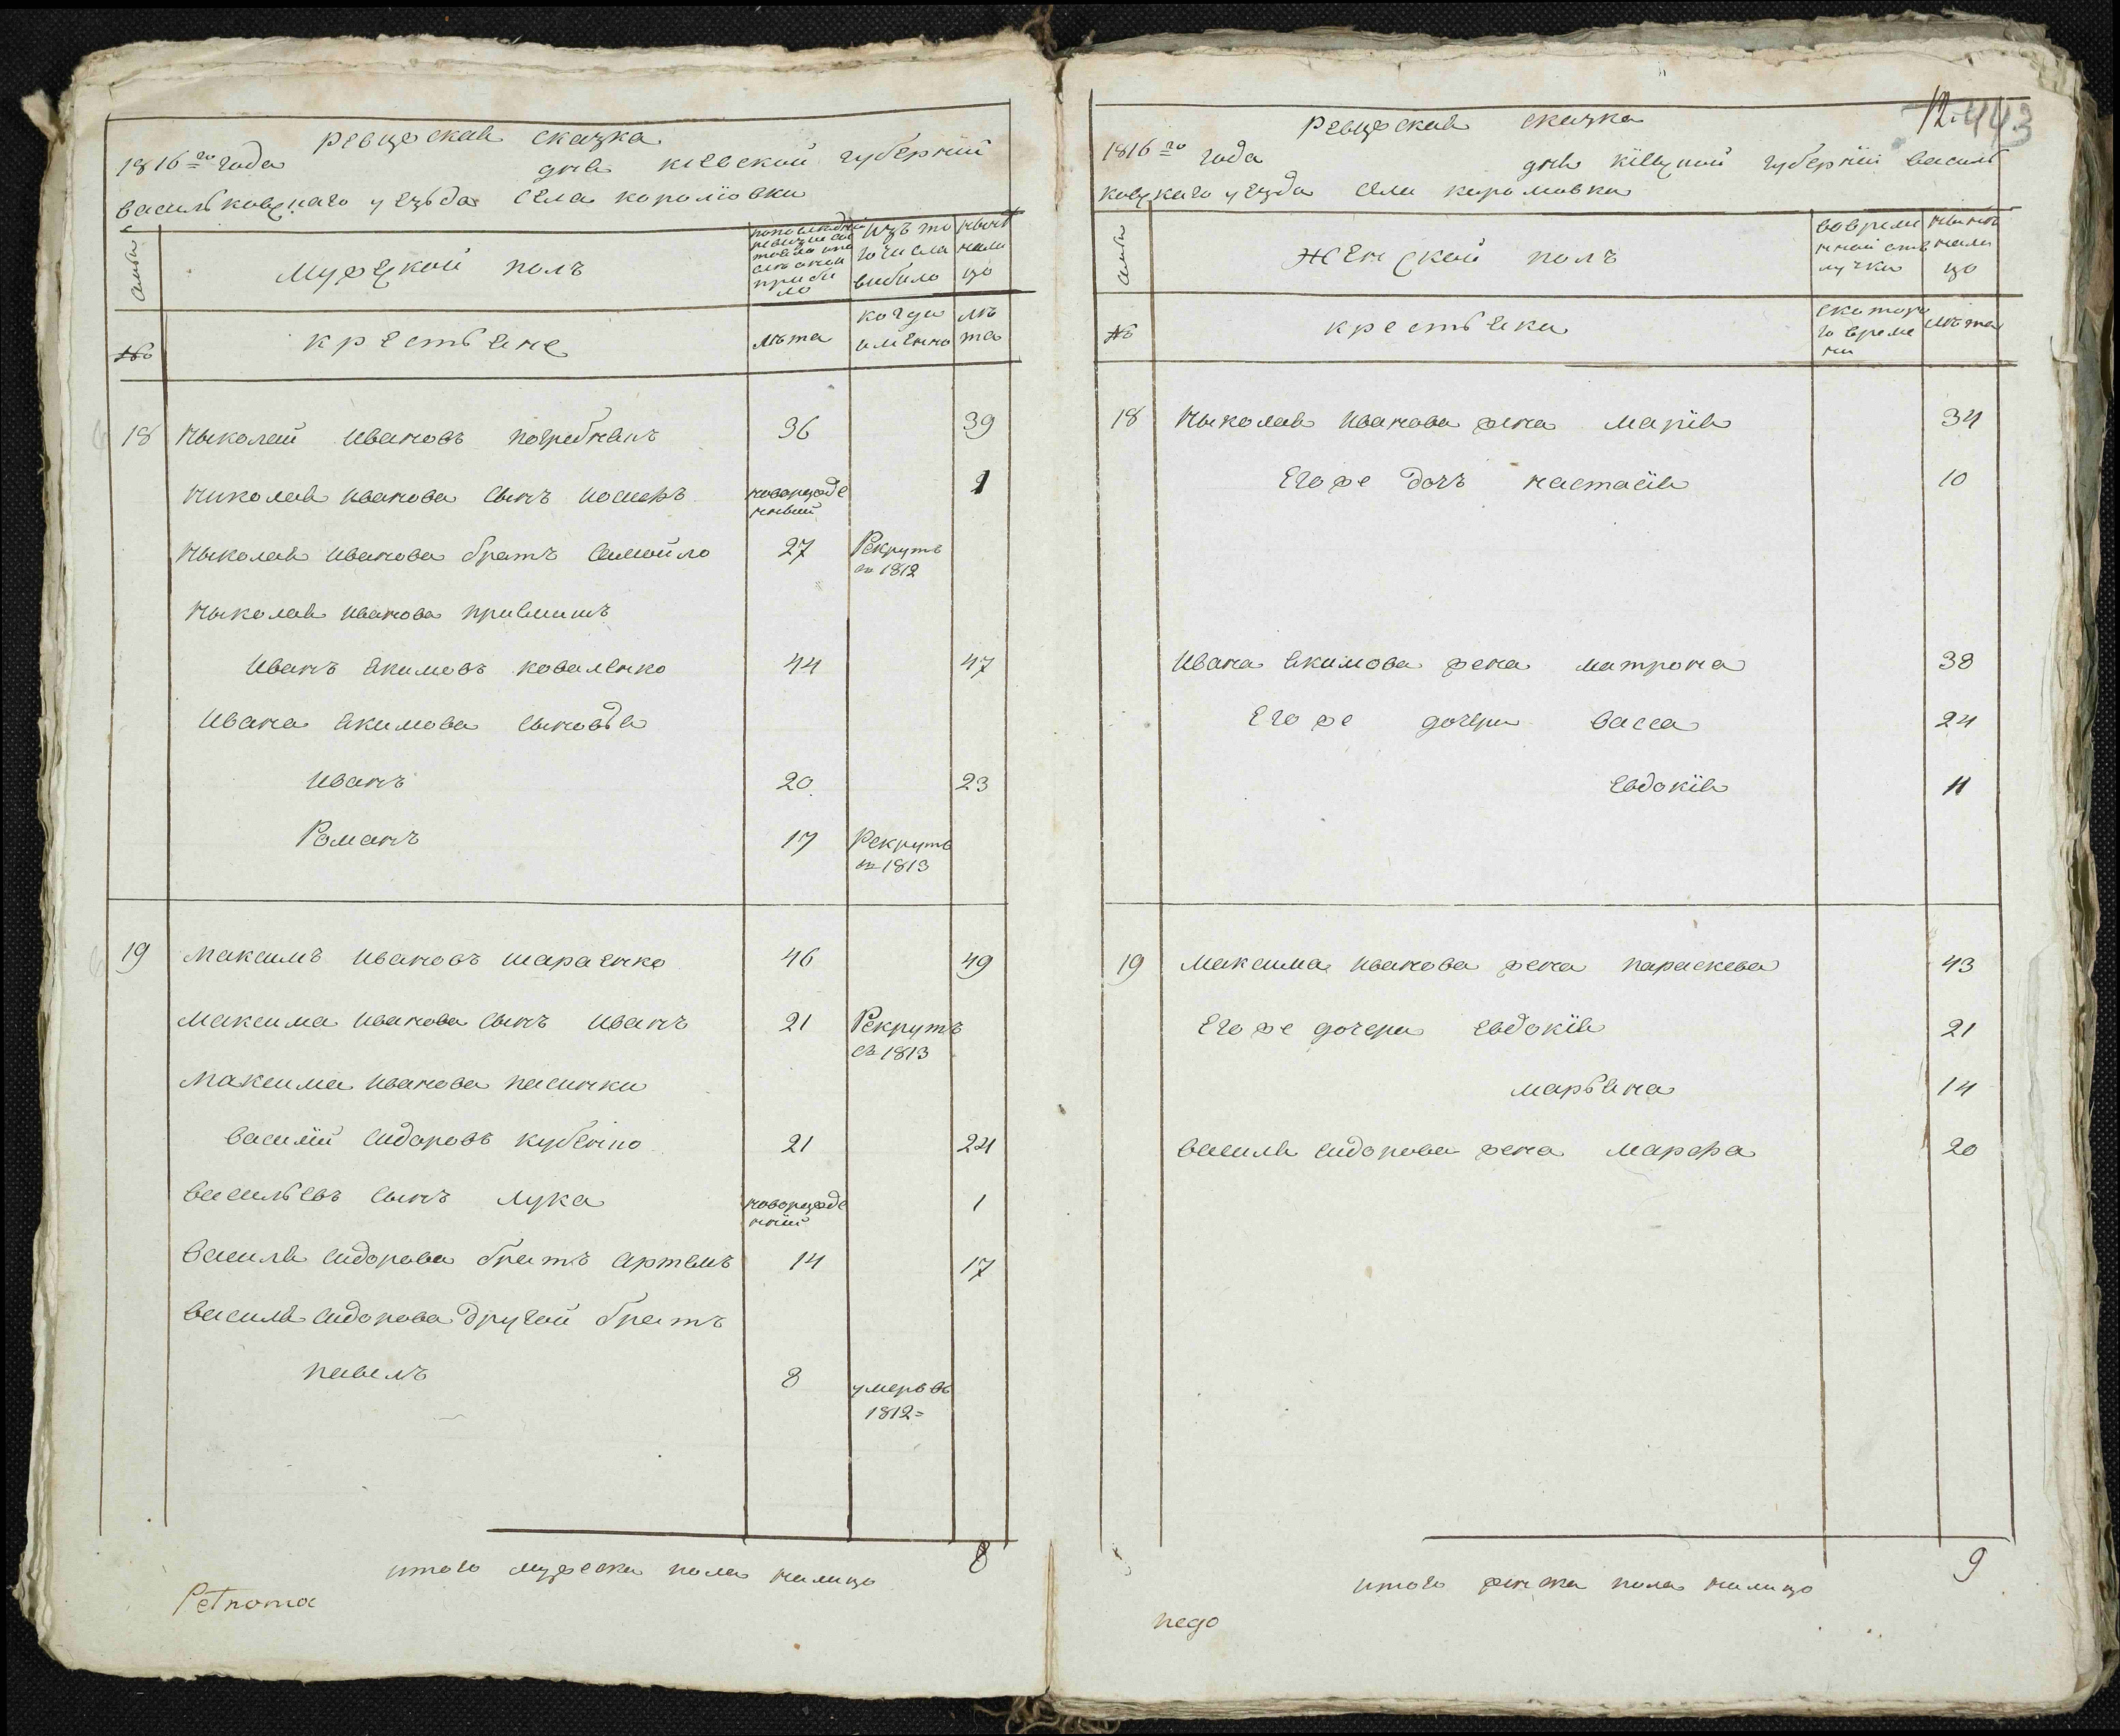 Ревизская сказка
1816го года дня киевской губернии
васильковскаго уезда села королювки
семьи
Мужеской полъ
по последней ревизии состояло и после оной прибыло
изъ того числа выбыло
ныне налицо
№
крестьяне
лѣта
когда именно
лѣта
18 Николай Ивановъ погребнякъ 36 39
Николая Иванова сынъ Иосифъ новорожденный 1
Николая Иванова братъ Самойло 27 Рекрутъ въ 1812
Николая Иванова приймитъ
Иванъ Екимовъ коваленко 44 47
Ивана Екимова сыновья
Иванъ 20 23
Романъ 17 Рекрутъ въ 1813
19 Максимъ Ивановъ шараенко 46 49
Максима Иванова сынъ Иванъ 21 Рекрутъ въ 1813
Максима Иванова пасинки
Василій Сидоровъ кубенко 21 24
Васильевъ сынъ Лука новорожденній 1
Василя Сидорова братъ Артемъ 14 17
Василя Сидорова другой братъ
павелъ 8 умеръ въ 1812
итого мужеска пола налицо 8
Petnoma
12. 443
Ревизская сказка
1816го года дня кіевской губерніи василь
ковскаго уезда села королювки
семьи
Женской полъ
во временной отлучки
ныне налицо
№
крестьянки
с котораго времени
лѣта
18 Николая Иванова жена Марія 34
Его же дочъ настасія 10
Ивана Екимова жена матрона 38
Его же дочери васса 24
Евдокія 11
19 Максима Иванова жена параскева 43
Его же дочери Евдокія 21
марьяна 14
Василя Сидорова жена Марфа 20
итого женска пола налицо 9
педо